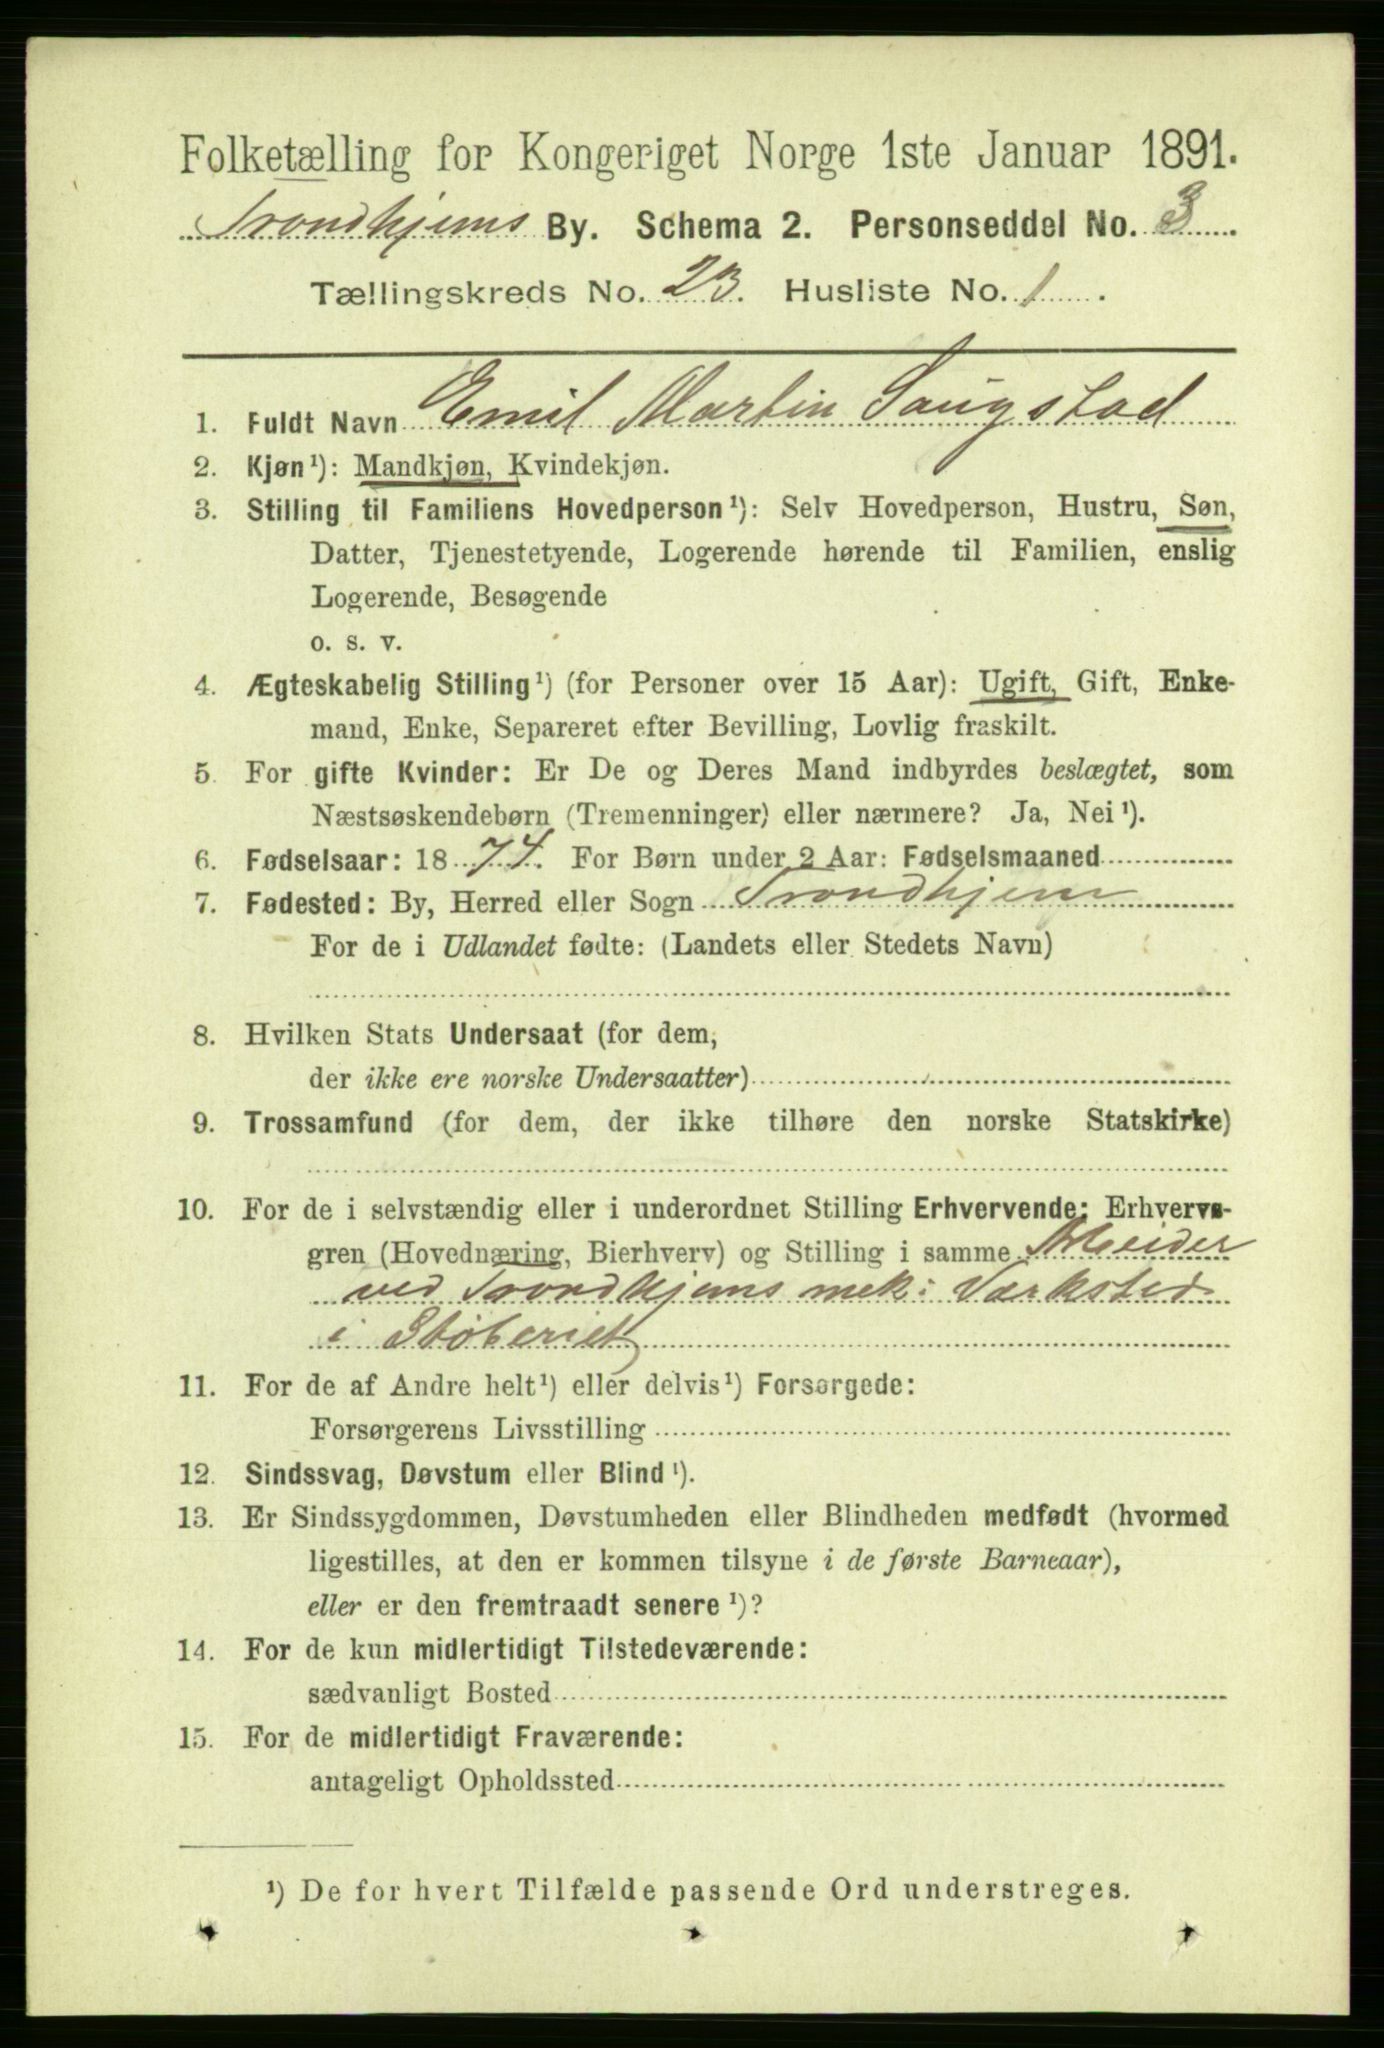 Folketælling for Kongeriget Norge 1ste Januar 1891.
Trondhjems By. Schema 2. Personseddel No. 3
Tællingskreds No. 23. Husliste No. 1.
1. Fuldt Navn Emil Martin Saugstad
2. Kjøn¹): Mandkjøn, Kvindekjøn.
3. Stilling til Familiens Hovedperson¹): Selv Hovedperson, Hustru, Søn,
Datter, Tjenestetyende, Logerende hørende til Familien, enslig
Logerende, Besøgende
o. s. v.
4. Ægteskabelig Stilling¹) (for Personer over 15 Aar): Ugift, Gift, Enke-
mand, Enke, Separeret efter Bevilling, Lovlig fraskilt.
5. For gifte Kvinder: Er De og Deres Mand indbyrdes beslægtet, som
Næstsøskendebørn (Tremenninger) eller nærmere? Ja, Nei¹).
6. Fødselsaar: 1874. For Børn under 2 Aar: Fødselsmaaned
7. Fødested: By, Herred eller Sogn Trondhjem
For de i Udlandet fødte: (Landets eller Stedets Navn)
8. Hvilken Stats Undersaat (for dem,
der ikke ere norske Undersaatter)
9. Trossamfund (for dem, der ikke tilhøre den norske Statskirke)
10. For de i selvstændig eller i underordnet Stilling Erhvervende: Erhvervs-
gren (Hovednæring, Bierhverv) og Stilling i samme Arbeider
ved Trondhjems mek: Værksted
i Støberiet
11. For de af Andre helt¹) eller delvis¹) Forsørgede:
Forsørgerens Livsstilling
12. Sindssvag, Døvstum eller Blind¹).
13. Er Sindssygdommen, Døvstumheden eller Blindheden medfødt (hvormed
ligestilles, at den er kommen tilsyne i de første Barneaar),
eller er den fremtraadt senere¹)?
14. For de kun midlertidigt Tilstedeværende:
sædvanligt Bosted
15. For de midlertidigt Fraværende:
antageligt Opholdssted
¹) De for hvert Tilfælde passende Ord understreges.